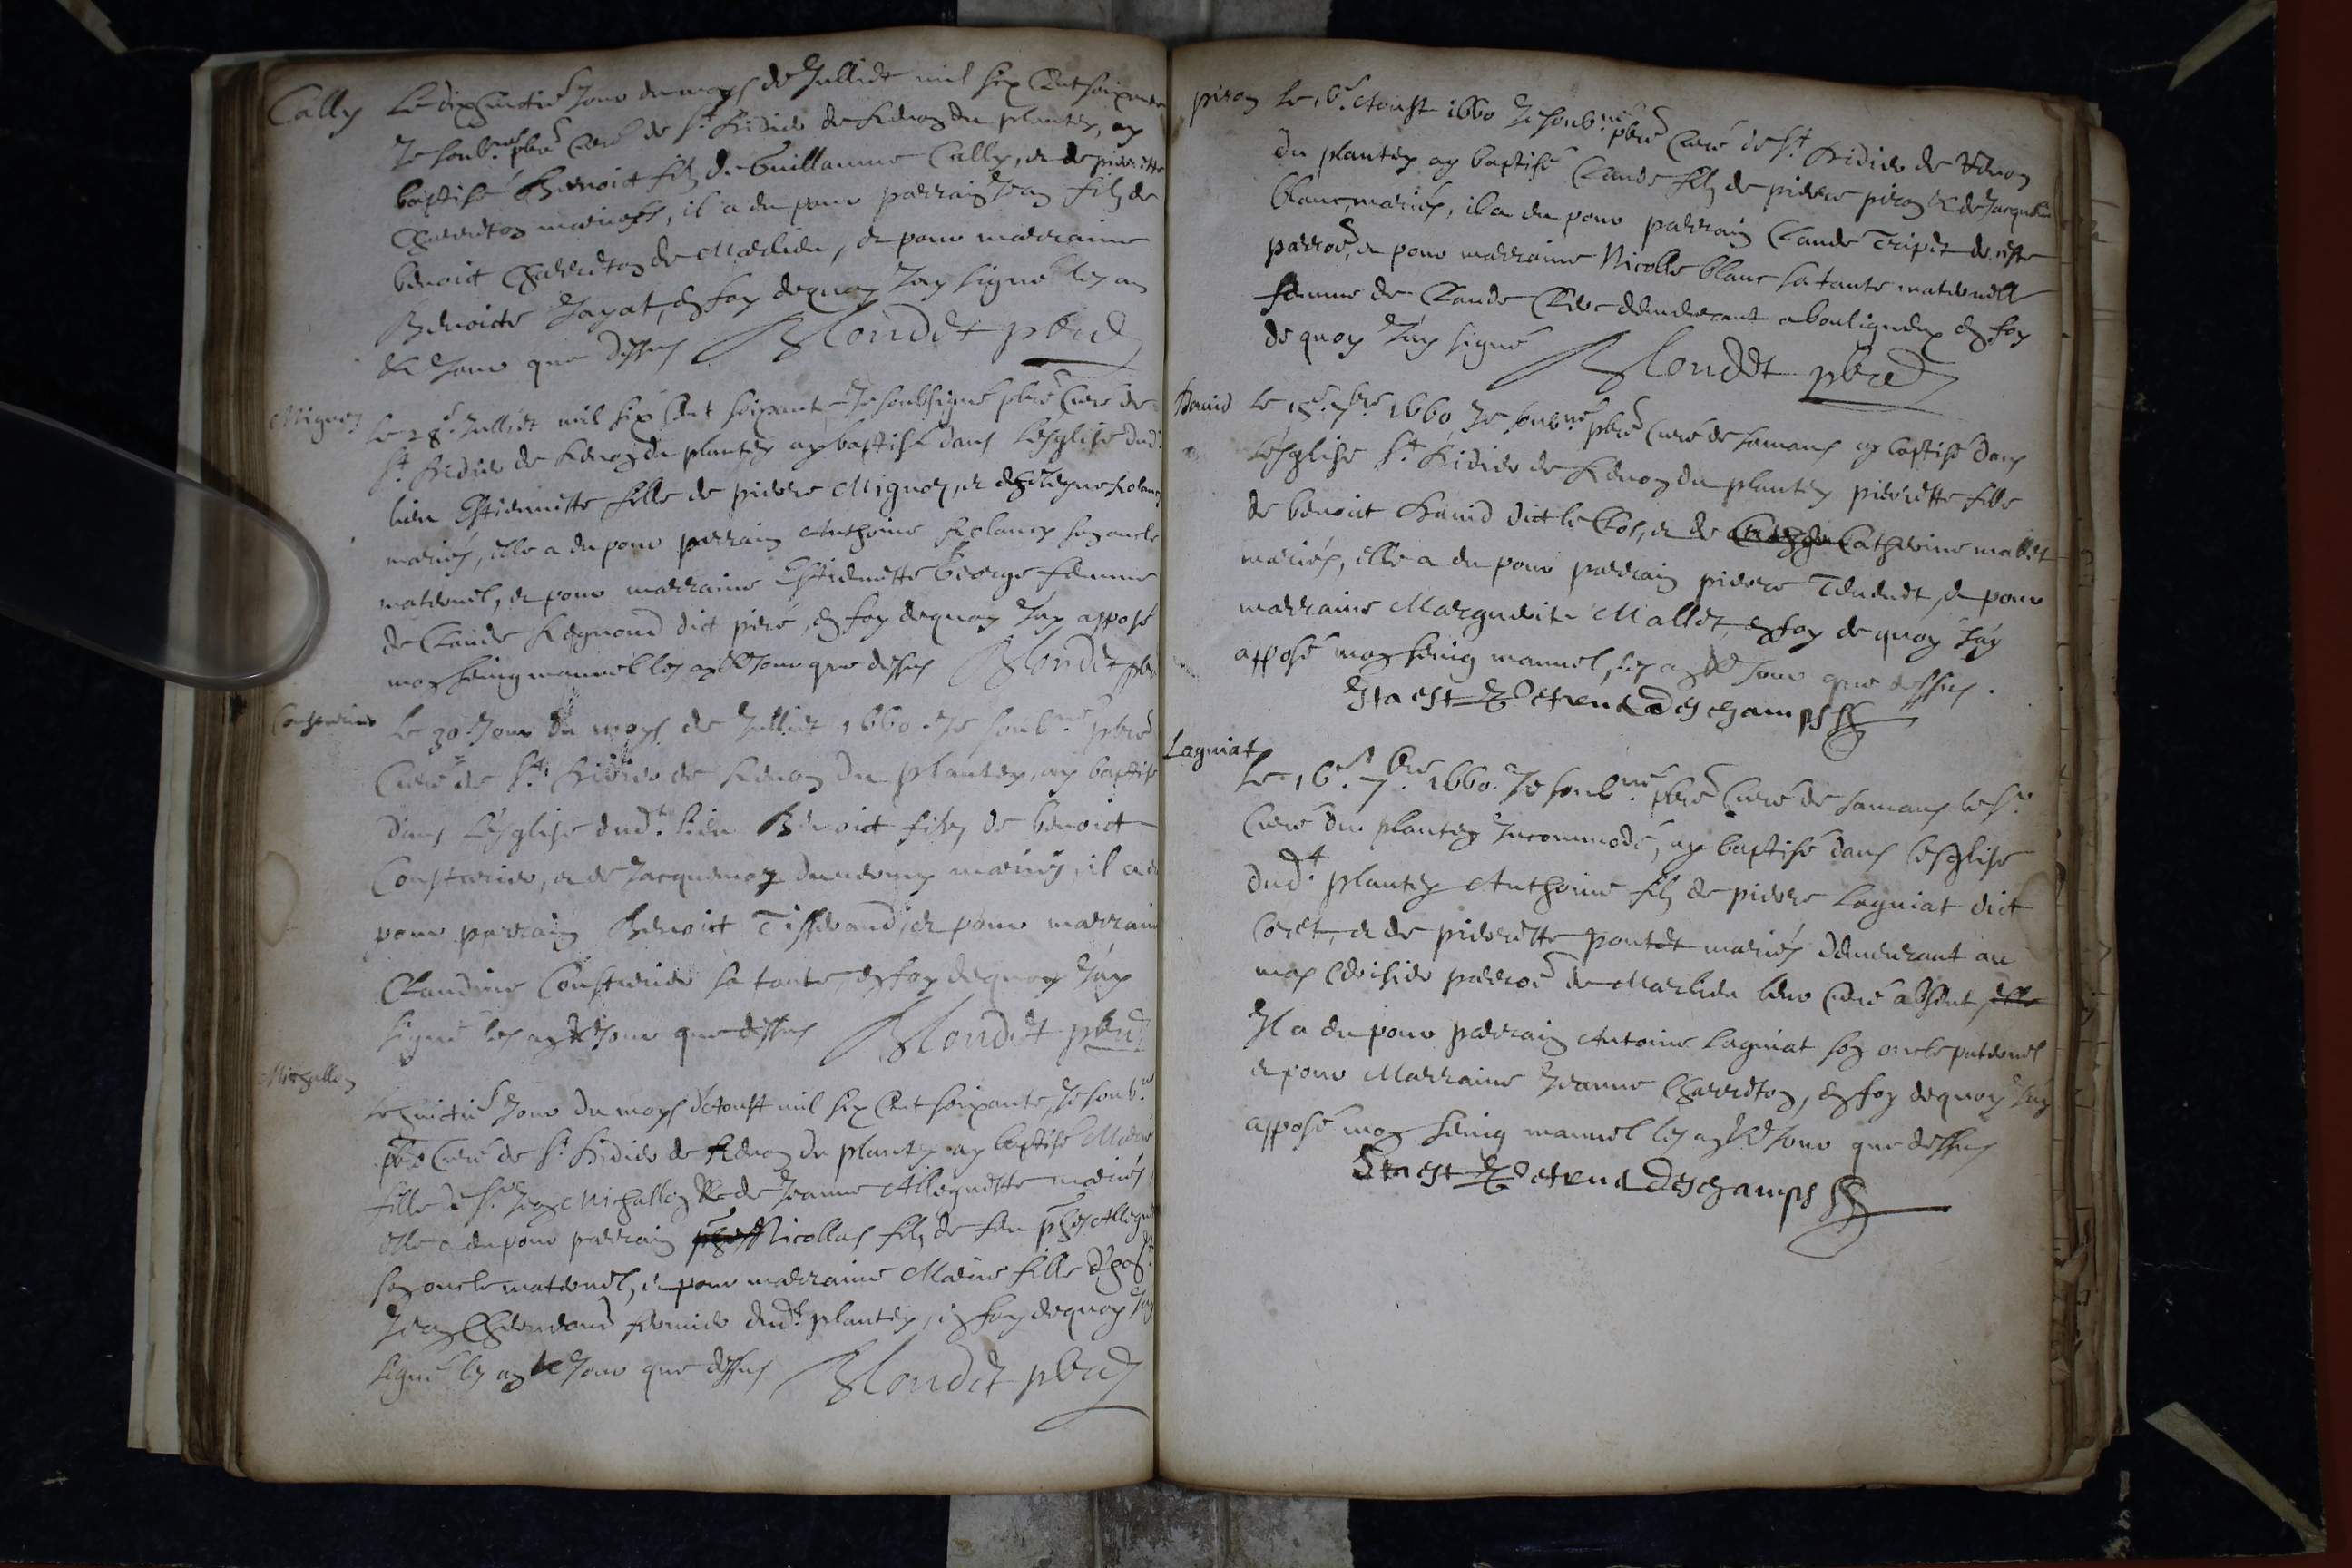 Cally
Le dixhuictie Jour du moys de Jullict mil six Cent soixante
Je soub.né pbre Curé de St Didier de Renon du plantey, ay
baptisé Benoict filz de Guillaume Cally, et de pierrette
Charreton mariess, il a eu pour parrain Jean filz de
benoict Charreton de Marlieu, et pour marraine
Benoicte Jayat, en foy dequoy Jay signé les an
et Jour que dessus Blondet pbre
Mignon
Le 28e Jullict mil six Cent soixante Je soubsigné pbre Curé de
St Didier de Renon du plantey ay baptisé dans l'esglise dud.
lieu Estiennette fille de pierre Mignon, et
mariés, elle a eu pour parrain Anthoine son oncle
maternel, et pour marraine Estiennette George femme
de Claude Regnoud dict piré, en foy dequoy Jay apposé
mon seing manuel les an et Jour que dessus Blondet pbre
Cousturier
Le 30 Jour du moys de Jullict 1660 Je soub.né pbre
Curé de St Didier de Renon du plantey, ay baptisé
dans l'esglise dud.t lieu Benoict filz de benoict
Cousturier, et de Jacquemoz mariés, il a eu
pour parrain Benoict Tisserand, et pour marraine
Claudine Cousturier sa tante, en foy dequoy Jay
signé les an et Jour que dessus Blondet pbre
Michallon
Le huictie Jour du moys d'Aoust mil six Cent soixante, Je soub.né
pbre Curé de St Didier de Renon du plantey ay baptisé Marie
fille de Sr Jean Michallon et de Jeanne Allegrette mariés,
elle a eu pour parrain Nicollas filz de feu
son oncle maternel, et pour marraine Marie fille d'hon.
Jean fermier dud.t plantey, en foy dequoy Jay
signé les an et Jour que dessus Blondet pbre
piron
Le 16e Aoust 1660 Je soub.né pbre Curé de St Didier de Renon
du plantey ay baptisé Claude filz de pierre piron et de Jacqueline
blanc, mariés, il a eu pour parrain Claude Tripet de ceste
parroe, et pour marraine Nicolle blanc sa tante maternelle
femme de Claude demeurant a bouligneux en foy
de quoy Jay signé Blondet pbre
David
Le 15e 7bre 1660 Je soub.né pbre Curé de Samans ay baptisé dans
l'esglise St Didier de Renon du plantey pierrette fille
de benoict David dict le Clos, et de Catherine mallet
mariés, elle a eu pour parrain pierre Tenenet, et pour
marraine Marguerite Mallet, en foy de quoy Jay
apposé mon seing manuel, les an et Jour que dessus.
Ita est Petrus Deschamps
Laguiat
Le 16e 7bre 1660. Je soub.né pbre Curé de Samans le Sr
Curé du plantey Incommodé, ay baptisé dans l'esglise
dud.t plantey Anthoine filz de pierre Laguiat dict
Coret, et de pierrette pontet mariés demeurant au
parroe de Marlieu leur Curé absent
Il a eu pour parrain Antoine Laguiat son oncle paternel
et pour Marraine Jeanne Charreton, en foy dequoy Jay
apposé mon seing manuel les an et Jour que dessus
Ita est Petrus Deschamps